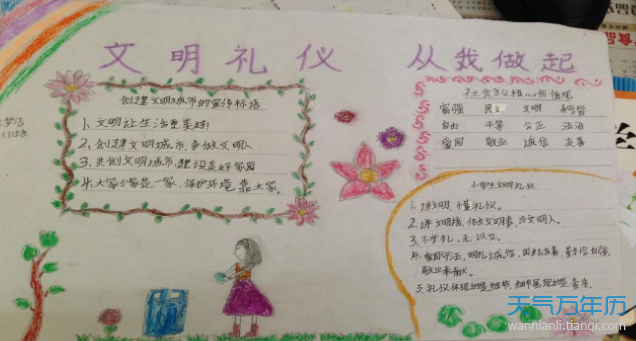 文明礼仪 从我做起
创建文明城市的宣传标语
1、文明让生活更美好!
2、创建文明城市,争做文明人
3、共创文明城市,建设美好家园
4、大家小家是一家,保护环境靠大家。
社会主义核心价值观
富强 民主 文明 和谐
自由 平等 公正 法治
爱国 敬业 诚信 友善
小学生文明礼仪
1、讲文明,懂礼仪。
3、不学礼,无以立。
4、爱国守法,明礼诚信,团结友善,勤俭自强,
敬业奉献。
天气万年历
wannianli.tianqi.com